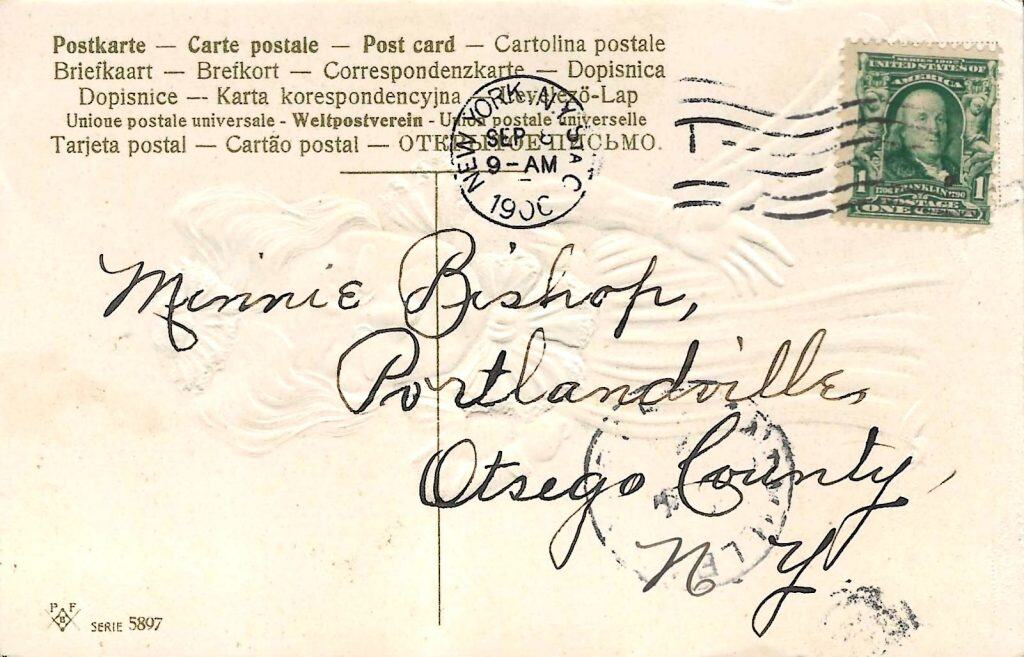 Postkarte — Carte postale — Post card — Cartolina postale
Briefkaart — Brefkort — Correspondenzkarte — Dopisnica
Dopisnice — Karta korespondencyjna - Levelező-Lap
Unione postale universale - Weltpostverein - Union postale universelle
Tarjeta postal — Cartão postal — ОТКРЫТОЕ ПИСЬМО.
NEW YORK, N.Y. STA C
SEP
9-AM
190
SERIES 1902
UNITED STATES OF
AMERICA
1 1706 FRANKLIN 1790 1
POSTAGE
ONE CENT
Minnie Bishop,
Portlandville,
Otsego County,
N Y.
LLE
P F
B
SERIE 5897